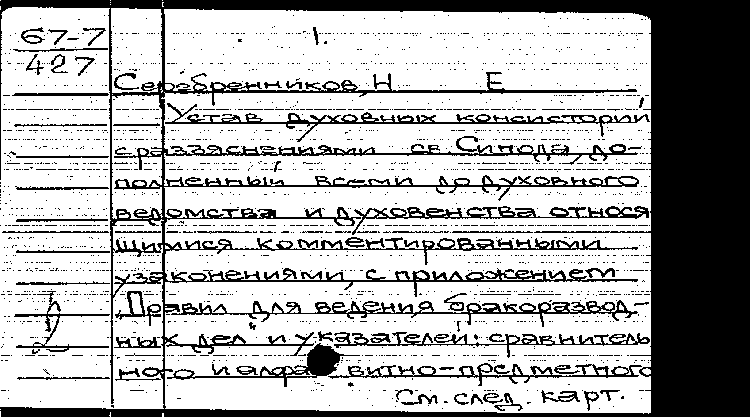 67-7
427
1.
Серебренников, Н Е
Устав духовных консисторий
с разъяснениями св. Синода, до-
полненный всеми до духовного
ведомства и духовенства относя
щимися комментированными
узаконениями, с приложением
„Правил для ведения бракоразвод-
ных дел" и указателей: сравнитель
ного и алфавитно-предметного
См. след. карт.